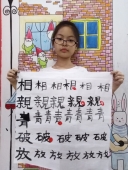 相相相相相
親親親親親
青青青青
破破破破破
放放放放放